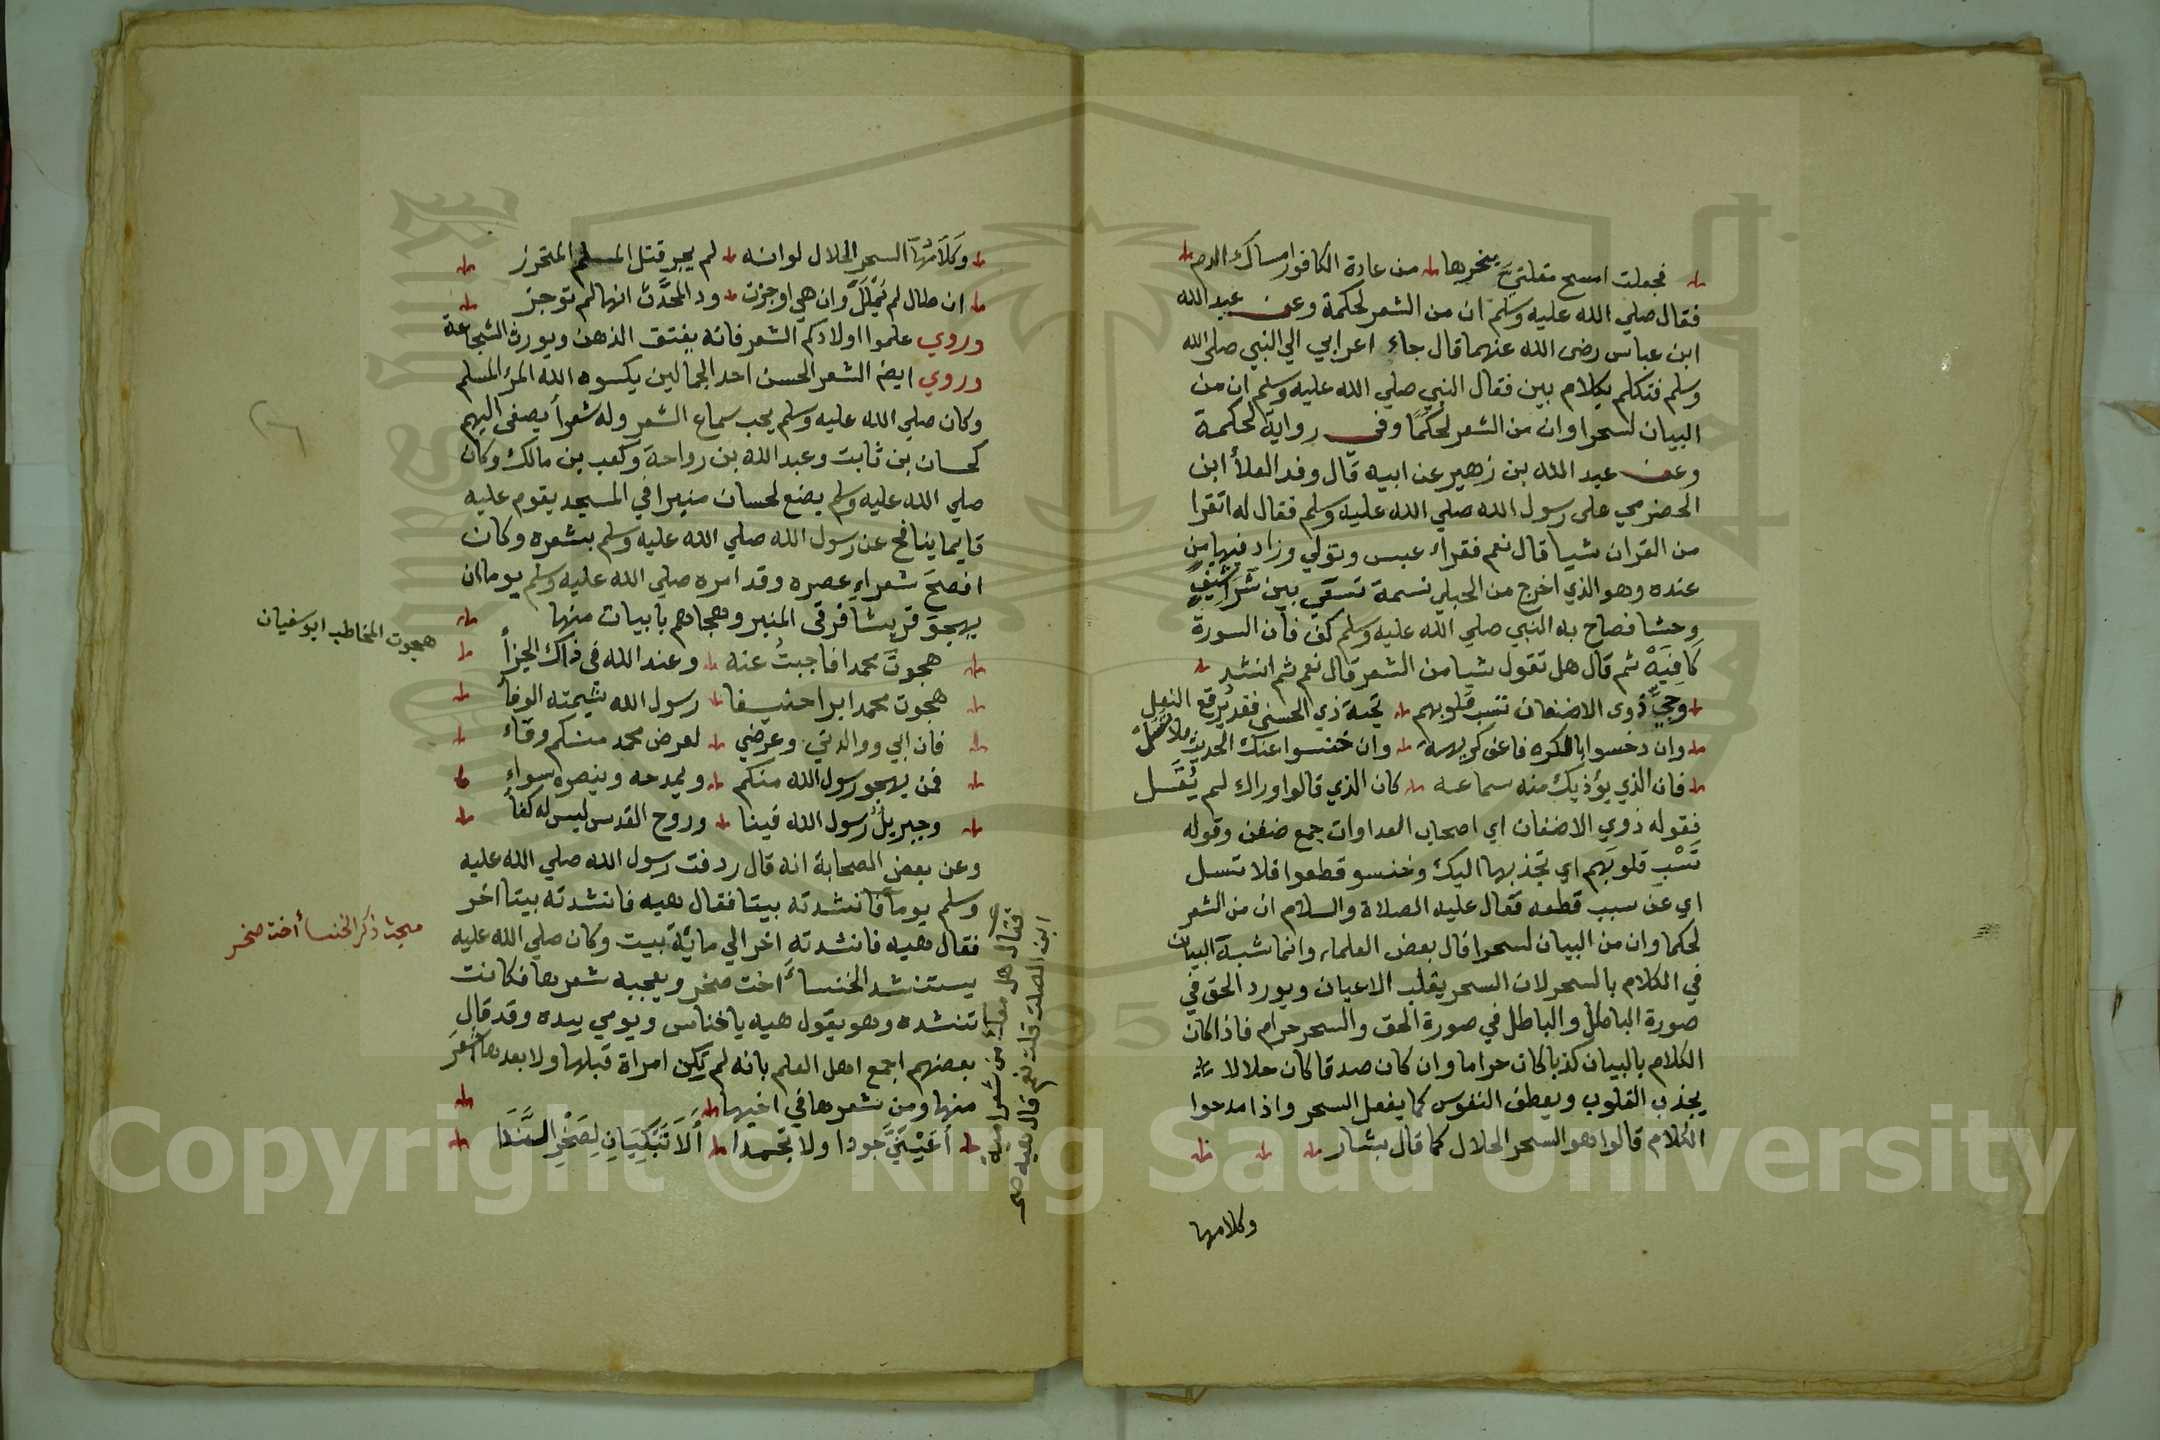 فجعلت امسح مقلتي بنحرها من عادة الكافور امساك الدم
فقال صلي الله عليه وسلم ان من الشعر لحكمة وعن عبد الله
ابن عباس رضى الله عنهما قال جاء اعرابي الي النبي صلي الله
وسلم فتكلم بكلام بين فقال النبي صلي الله عليه وسلم ان من
البيان لسحرا وان من الشعر لحكما وفى رواية لحكمة
وعن عبد الله بن زهير عن ابيه قال وفد العلأ ابن
الحضرمي على رسول الله صلي الله عليه وسلم فقال له اتقرا
من القران شيا قال نعم فقرأ عبس وتولي وزاد فيها من
عنده وهو الذي اخرج من الحبلي نسمة تسعى بين شراسيف
وحشا فصاح به النبي صلي الله عليه وسلم كف فان السورة
كافيه ثم قال هل تقول شيا من الشعر قال نعم ثم انشد
وحي ذوى الاضغان تسب قلوبهم تحية ذي الحسني فقد يرقع النعل
وان دخسوا بالكره فاعف كريمة وان خنسوا عنك الحديث فلا تسل
فان الذي يؤذيك منه سماعه كان الذي قالوا وراك لم يقل
فقوله ذوي الاضغان اي اصحاب العداوات جمع ضغن وقوله
تسب قلوبهم اي تجذبها اليك وخنسو قطعوا فلا تسل
اي عن سبب قطعه فقال عليه الصلاة والسلام ان من الشعر
لحكما وان من البيان لسحرا قال بعض العلماء وانما شبه البيان
في الكلام بالسحر لان السحر يقلب الاعيان ويورد الحق في
صورة الباطل والباطل في صورة الحق والسحر حرام فاذا كان
الكلام بالبيان كذبا كان حراما وان كان صدقا كان حلالا
يجذب القلوب ويعطف النفوس كما يفعل السحر واذا مدحوا
الكلام قالوا هو السحر الحلال كما قال بشار
وكلامها
وكلامها السحر الحلال لو انه لم يجر قتل المسلم المتحرز
ان طال لم يملل وان هي اوجزت ود المحدث انها لم توجز
وروي علموا اولادكم الشعر فانه يفتق الذهن ويورث الشجاعة
وروي ايضا الشعر الحسن احد الجمالين يكسوه الله المرأ المسلم
وكان صلي الله عليه وسلم يحب سماع الشعر وله شعرأ يصغى اليهم
كحسان بن ثابت وعبد الله بن رواحة وكعب بن مالك وكان
صلي الله عليه وسلم يضع لحسان منبرا في المسجد يقوم عليه
قايما ينافح عن رسول الله صلي الله عليه وسلم بشعره وكان
افصح شعراء عصره وقد امره صلي الله عليه وسلم يوما ان
يهجو قريشا فرقى المنبر وهجاهم بابيات منها
هجوت محمدا فاجبت عنه وعند الله فى ذاك الجزأ
هجوت محمد ابرا حنيفا رسول الله شيمته الوفا
فان ابي ووالدتي وعرضي لعرض محمد منكم وقاء
فمن يهجو رسول الله منكم ويمدحه وينصره سواء
وجبريل رسول الله فينا وروح القدس ليس له كفأ
وعن بعض الصحابة انه قال ردفت رسول الله صلي الله عليه
وسلم يوما فانشدته بيتا فقال هيه فانشدته بيتا اخر
فقال هيه فانشدته اخر الي ماية بيت وكان صلي الله عليه
يستنشد الخنسا اخت صخر ويعجبه شعرها فكانت
تنشده وهو يقول هيه يا خناس ويومي بيده وقد قال
بعضهم اجمع اهل العلم بانه لم تكن امراة قبلها ولا بعدها اشعر
منها ومن شعرها في اخيها
أعيني جودا ولا تجمدا ألا تبكيان لصخر الندا
هجوت المخاطب ابو سفيان
مبحث ذكر الخنسأ أخت صخر
فقال هل معك من شعر امية
ابن الصلت قلت نعم قال هيه صح
Copyright © King Saud University